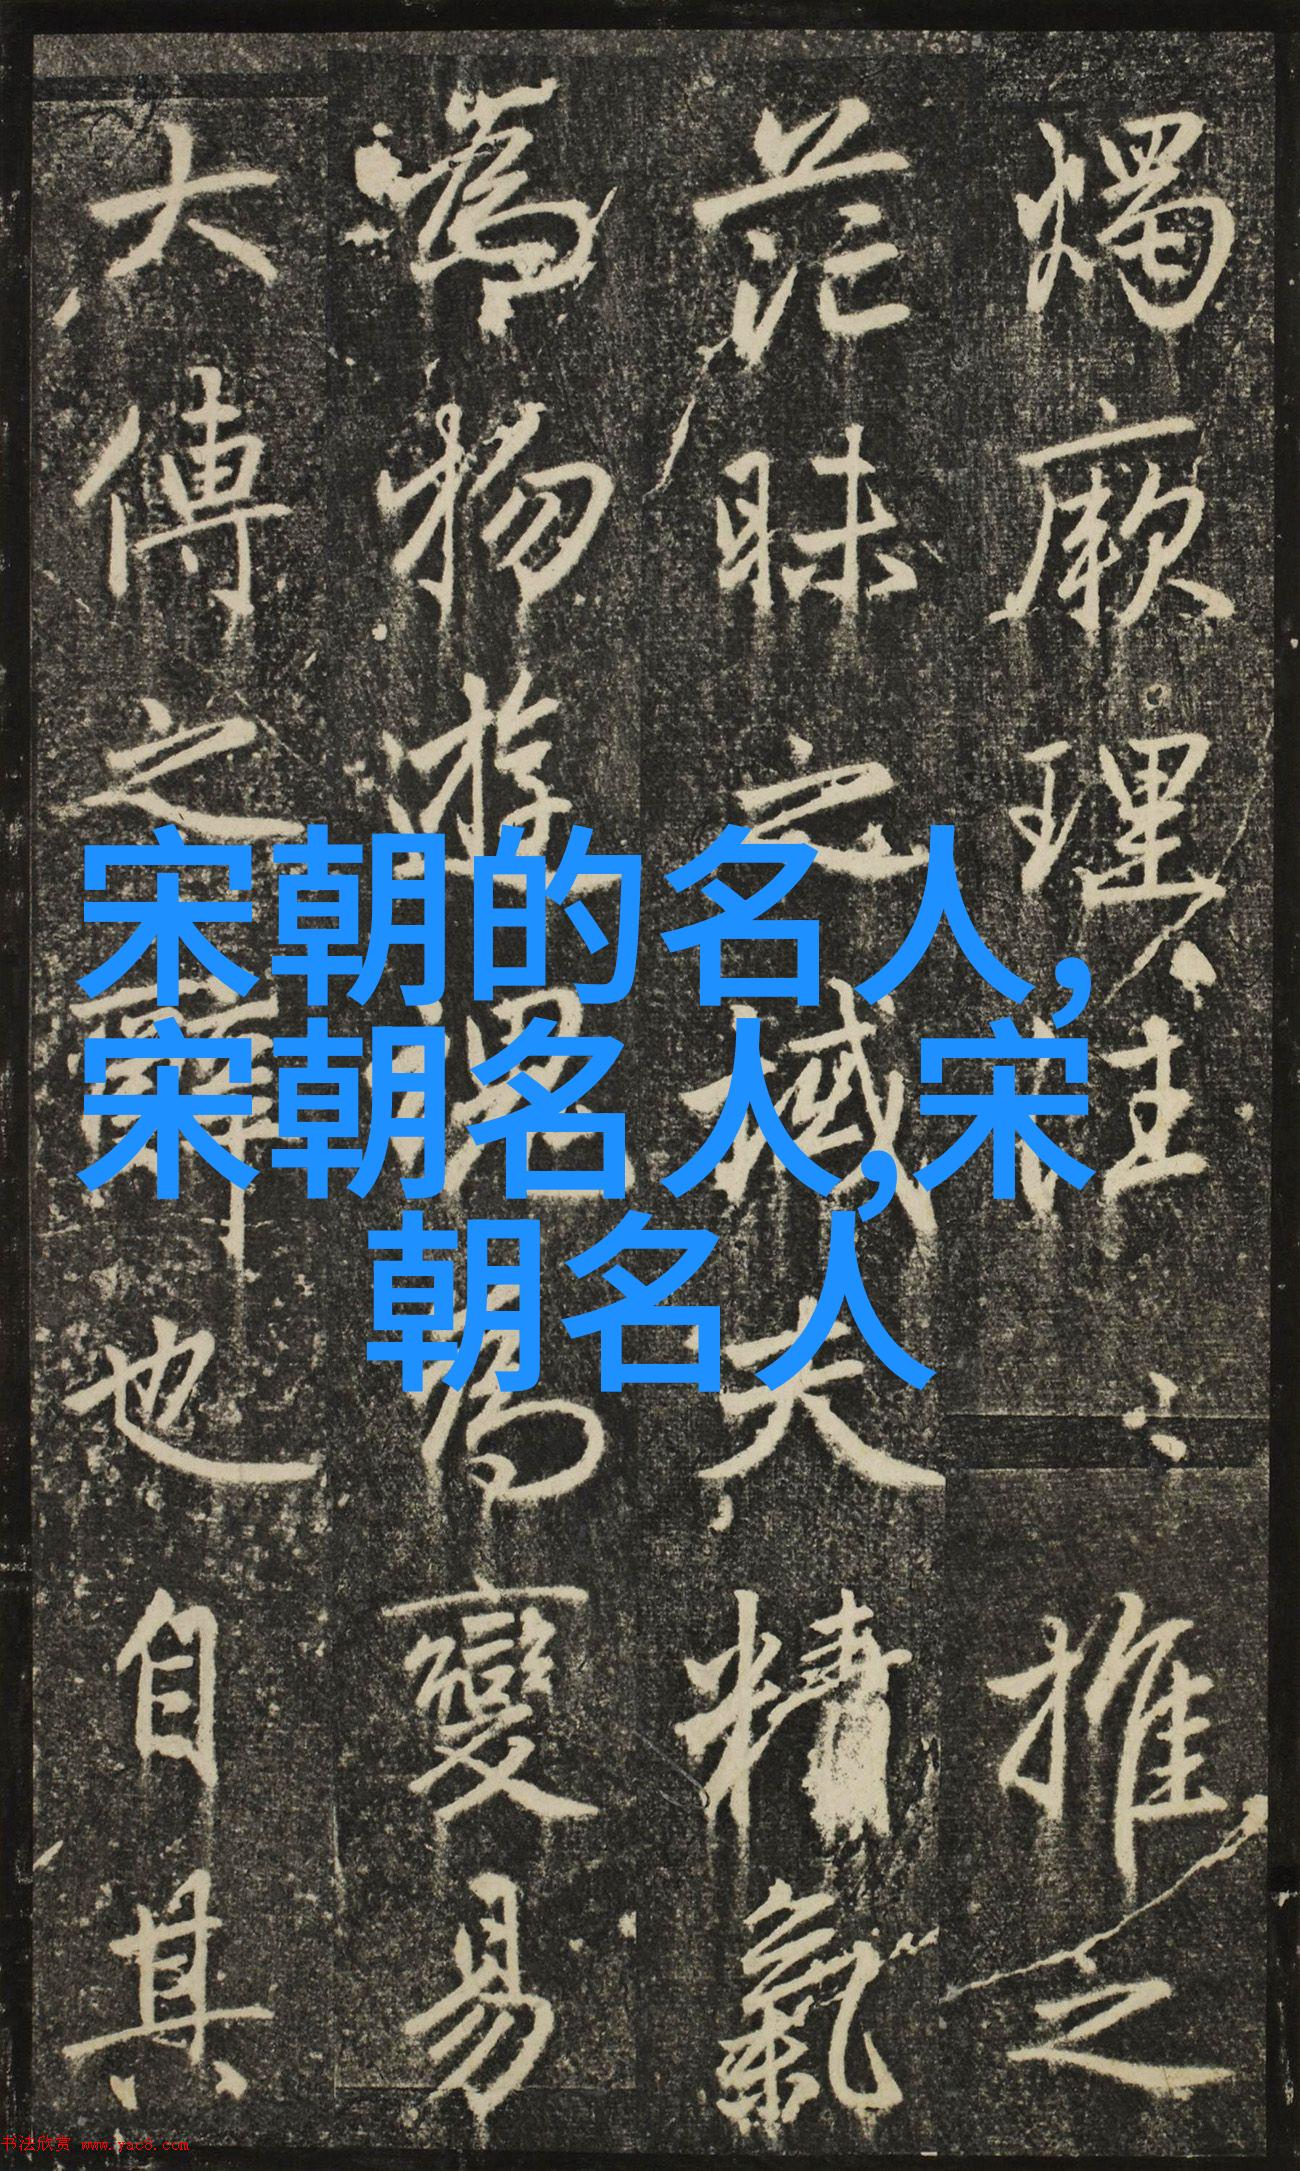 燭厥理往〻推之
茫昧之域夫精氣
為物遊魂為變易
大傳之辭也自其
宋朝的名人,
宋朝名人,宋
朝名人
书法欣赏 www.yac8.com